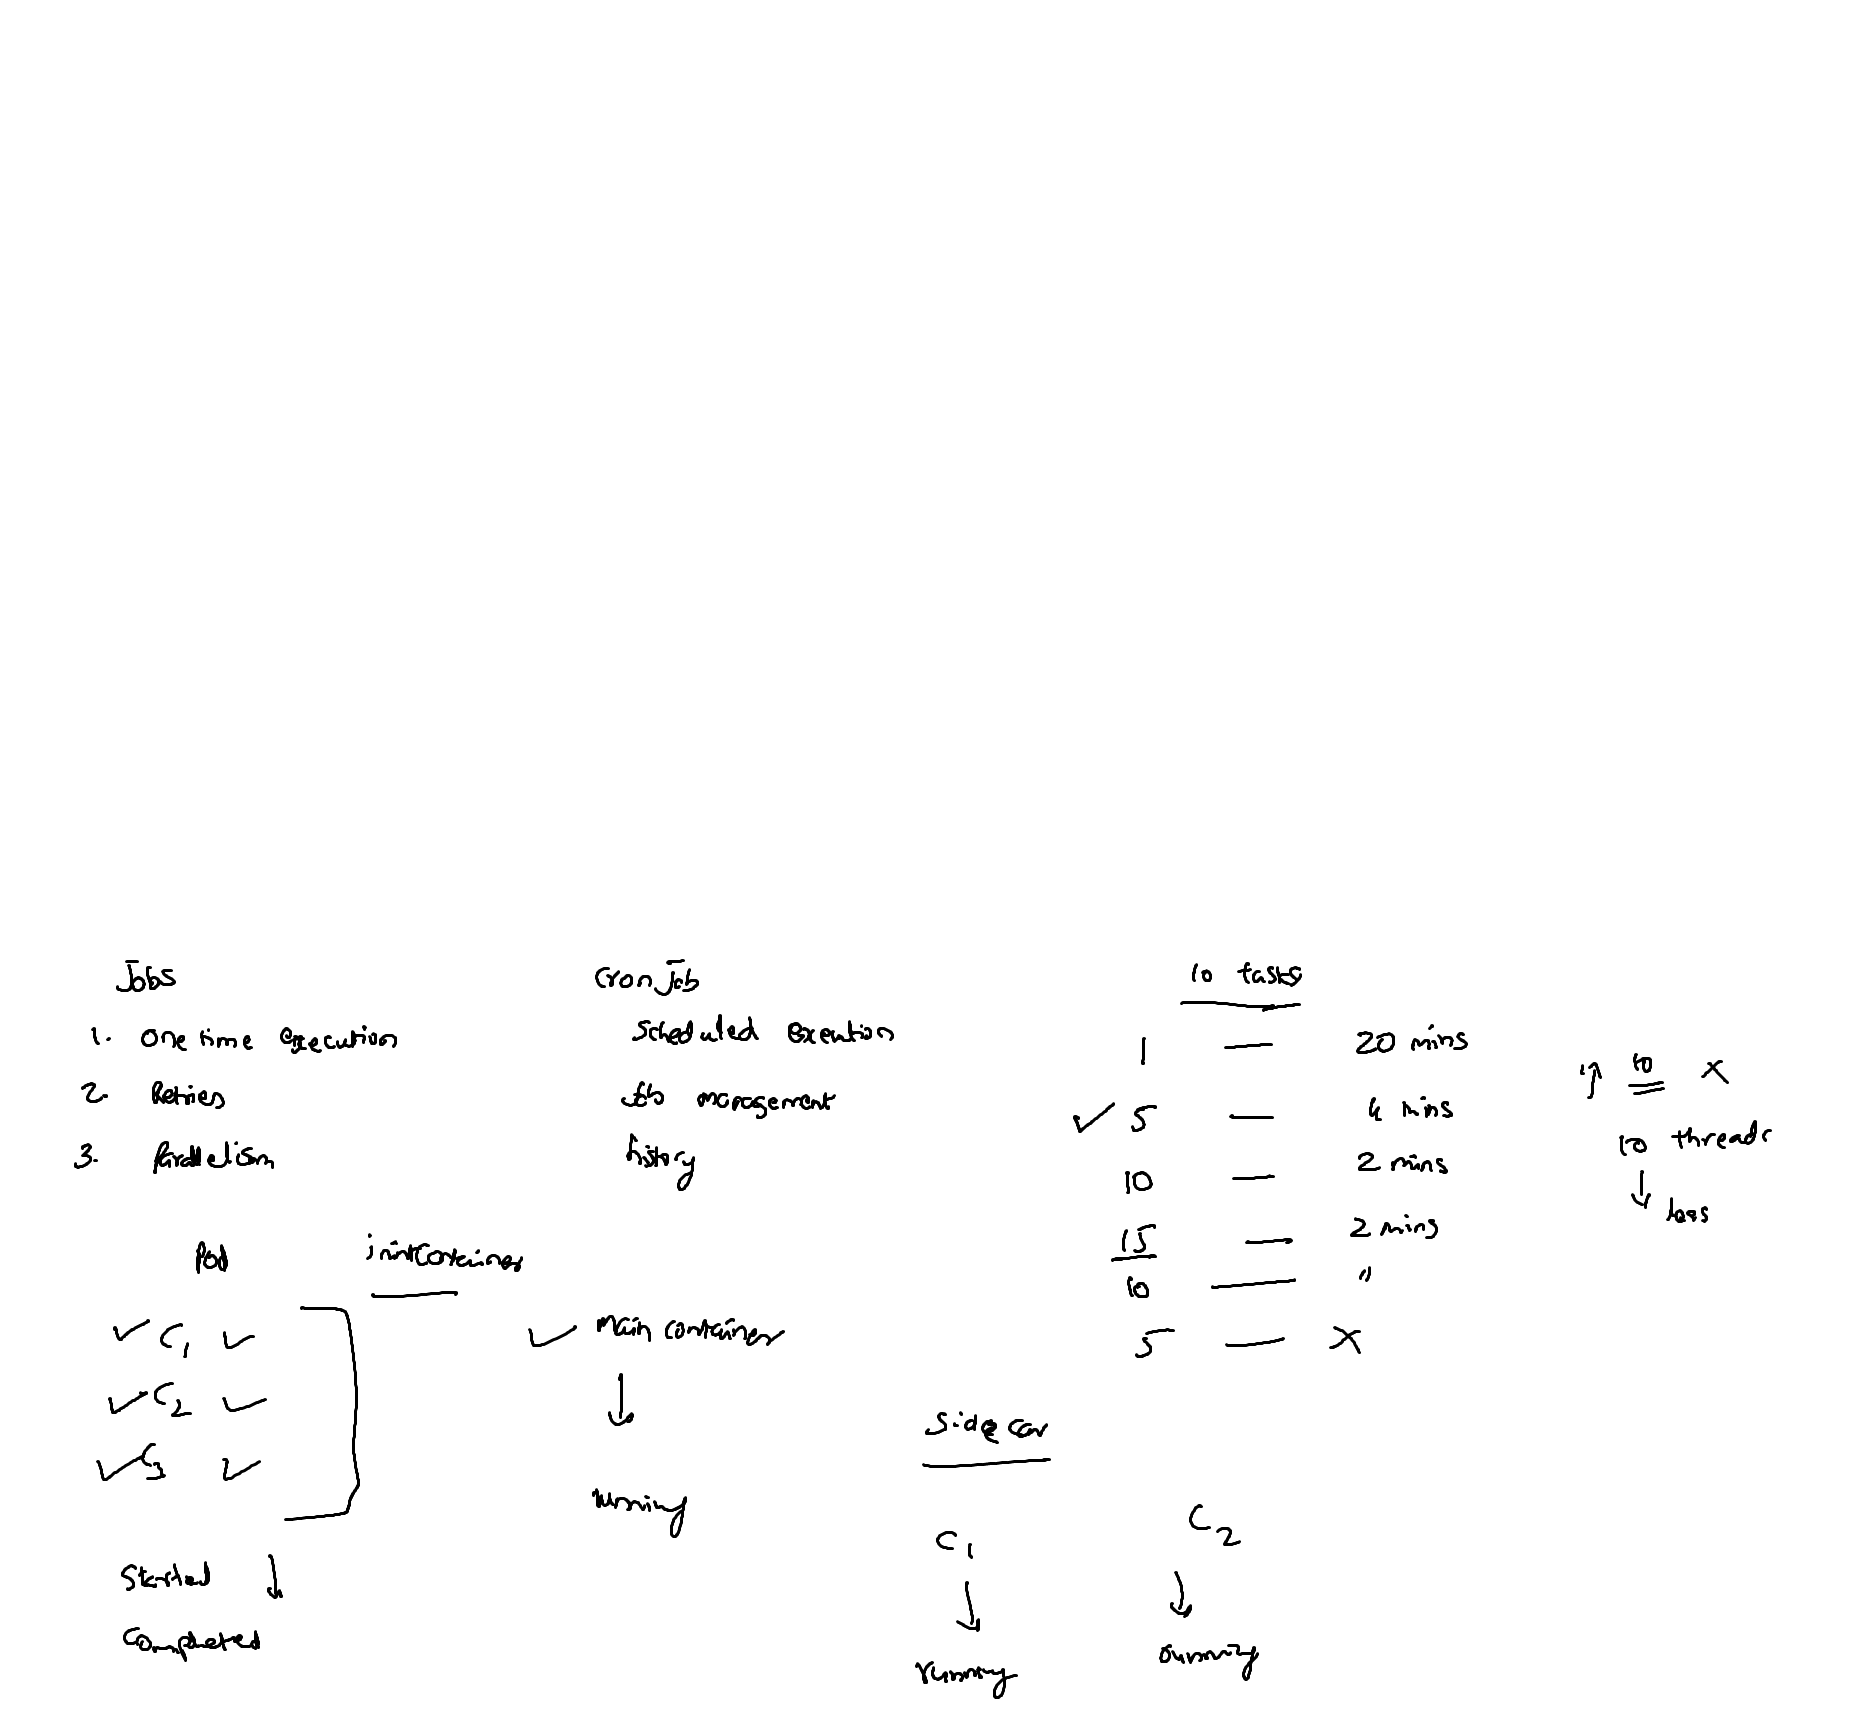 Jobs
1. One time execution
2. Retries
3. Parallelism
CronJob
Scheduled execution
Job management
history
10 tasks
1 — 20 mins
✓ 5 — 4 mins
10 — 2 mins
15 — 2 mins
10 — "
5 — X
↑ 10 X
10 threads
↓ less
Pod
initContainer
✓ C1 ✓
✓ C2 ✓
✓ C3 ✓
Started ↓
Completed
✓ Main container
↓
running
Side car
C1
↓
running
C2
↓
running